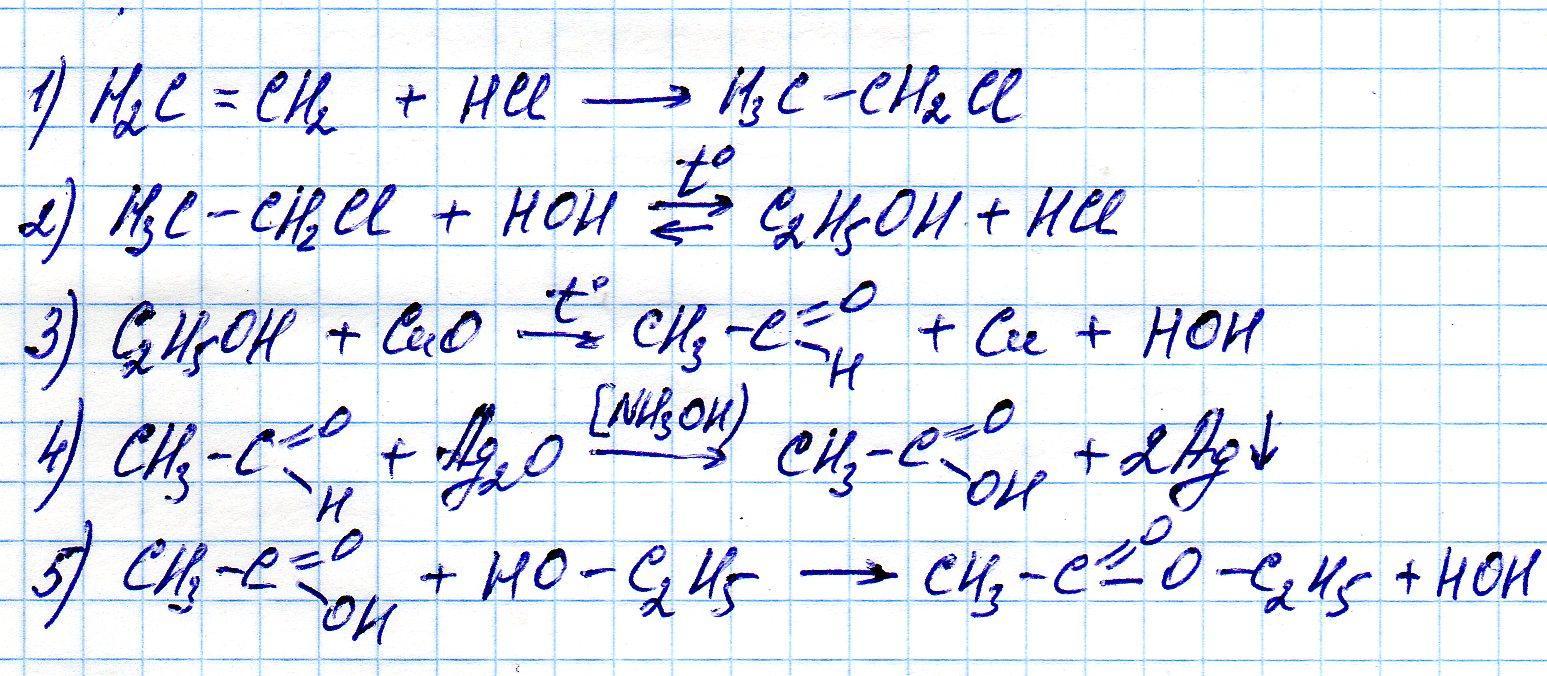 1) H₂C = CH₂ + HCl ⟶ H₃C – CH₂Cl
2) H₃C – CH₂Cl + HOH ⇌ (t°) C₂H₅OH + HCl
3) C₂H₅OH + CuO ⟶ (t°) CH₃ – C(=O)–H + Cu + HOH
4) CH₃ – C(=O)–H + Ag₂O ⟶ [NH₃OH) CH₃ – C(=O)–OH + 2Ag↓
5) CH₃ – C(=O)–OH + HO – C₂H₅ ⟶ CH₃ – C(=O)–O – C₂H₅ + HOH